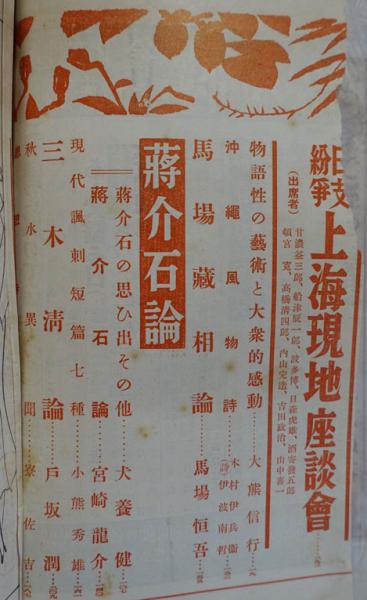 日支紛爭 上海現地座談會
(出席者)
甘濃益三郎、船津辰一郎、波多博、日森虎雄、酒寄發五郎
頓宮寛、高橋清四郎、內山完造、吉田政治、山中喜一
物語性の藝術と大衆的感動……大熊信行
沖繩風物詩……木村伊兵衞
(詩)伊波南哲
馬場藏相論……馬場恒吾
蔣介石論
蔣介石の思ひ出その他……犬養健
蔣介石論……宮崎龍介
現代諷刺短篇七種……小熊秀雄
三木淸論……戶坂潤
秋水異聞……寮佐吉